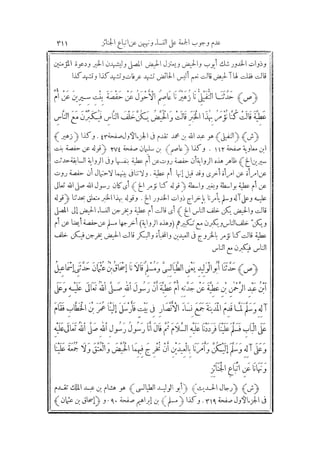 عدم وجوب الجمعة على النساء ونهيهن عن اتباع الجنائز ٣١١
وذوات الخدور شك أيوب والحيض ويعتزل الحيض المصلى وليشهدن الخير ودعوة المؤمنين
قالت فقلت لها الحيض قالت نعم أليس الحائض تشهد عرفات وتشهد كذا وتشهد كذا
(ص) حَدَّثَنَا النُّفَيْلِيُّ نَا زُهَيْرٌ نَا عَاصِمٌ الْأَحْوَلُ عَنْ حَفْصَةَ بِنْتِ سِيرِينَ عَنْ أُمِّ
عَطِيَّةَ قَالَتْ كُنَّا نُؤْمَرُ بِهَذَا الْخَبَرِ قَالَتْ وَالْحُيَّضُ يَكُنَّ خَلْفَ النَّاسِ فَيُكَبِّرْنَ مَعَ النَّاسِ
(ش) (النفيلي) هو عبد الله بن محمد تقدم فى الجزء الأول صفحة ٤٣. وكذا (زهير)
ابن معاوية صفحة ١١٢. وكذا (عاصم) بن سليمان صفحة ٢٧٤ (قوله عن حفصة بنت
سيرين الخ) ظاهر هذه الرواية أن حفصة روت عن أم عطية بنفسها وفى الرواية السابقة حدثت
عن امرأة عن امرأة أخرى وقد قيل إنها أم عطية. ولا تنافى بينهما لاحتمال أن حفصة روت
عن أم عطية بواسطة وبغير واسطة (قوله كنا نؤمر الخ) أى كان رسول الله صلى الله تعالى
عليه وعلى آله وسلم يأمرنا بإخراج ذوات الخدور الخ. وقوله بهذا الخبر متعلق بحدثنا (قوله
قالت والحيض يكن خلف الناس الخ) أى قالت أم عطية ويخرجن النساء الحيض إلى المصلى
ويكن خلف الناس ويكبرن مع تكبيرهم (وهذه الرواية) أخرجها مسلم عن حفصة أيضا عن أم
عطية قالت كنا نؤمر بالخروج فى العيدين والمخبأة والبكر قالت الحيض يخرجن فيكن خلف
الناس فيكبرن مع الناس
(ص) حَدَّثَنَا أَبُو الْوَلِيدِ يَعْنِى الطَّيَالِسِيَّ وَمُسْلِمٌ قَالَا نَا إِسْحَاقُ بْنُ عُثْمَانَ حَدَّثَنِى إِسْمَاعِيلُ
ابْنُ عَبْدِ الرَّحْمَنِ بْنِ عَطِيَّةَ عَنْ جَدَّتِهِ أُمِّ عَطِيَّةَ أَنَّ رَسُولَ اللهِ صَلَّى اللهُ تَعَالَى عَلَيْهِ وَعَلَى
آلِهِ وَسَلَّمَ لَمَّا قَدِمَ الْمَدِينَةَ جَمَعَ نِسَاءَ الْأَنْصَارِ فِى بَيْتٍ فَأَرْسَلَ إِلَيْنَا عُمَرَ بْنَ الْخَطَّابِ فَقَامَ
عَلَى الْبَابِ فَسَلَّمَ عَلَيْنَا فَرَدَدْنَا عَلَيْهِ السَّلَامَ ثُمَّ قَالَ أَنَا رَسُولُ رَسُولِ اللهِ صَلَّى اللهُ تَعَالَى عَلَيْهِ
وَعَلَى آلِهِ وَسَلَّمَ إِلَيْكُنَّ وَأَمَرَنَا بِالْعِيدَيْنِ أَنْ نُخْرِجَ فِيهِمَا الْحُيَّضَ وَالْعُتَّقَ وَلَا جُمُعَةَ عَلَيْنَا
وَنَهَانَا عَنِ اتِّبَاعِ الْجَنَائِزِ
(ش) (رجال الحديث) (أبو الوليد الطيالسى) هو هشام بن عبد الملك تقدم
فى الجزء الأول صفحة ٣١٩. وكذا (مسلم) بن إبراهيم صفحة ٩٠. و (إسحاق بن عثمان)